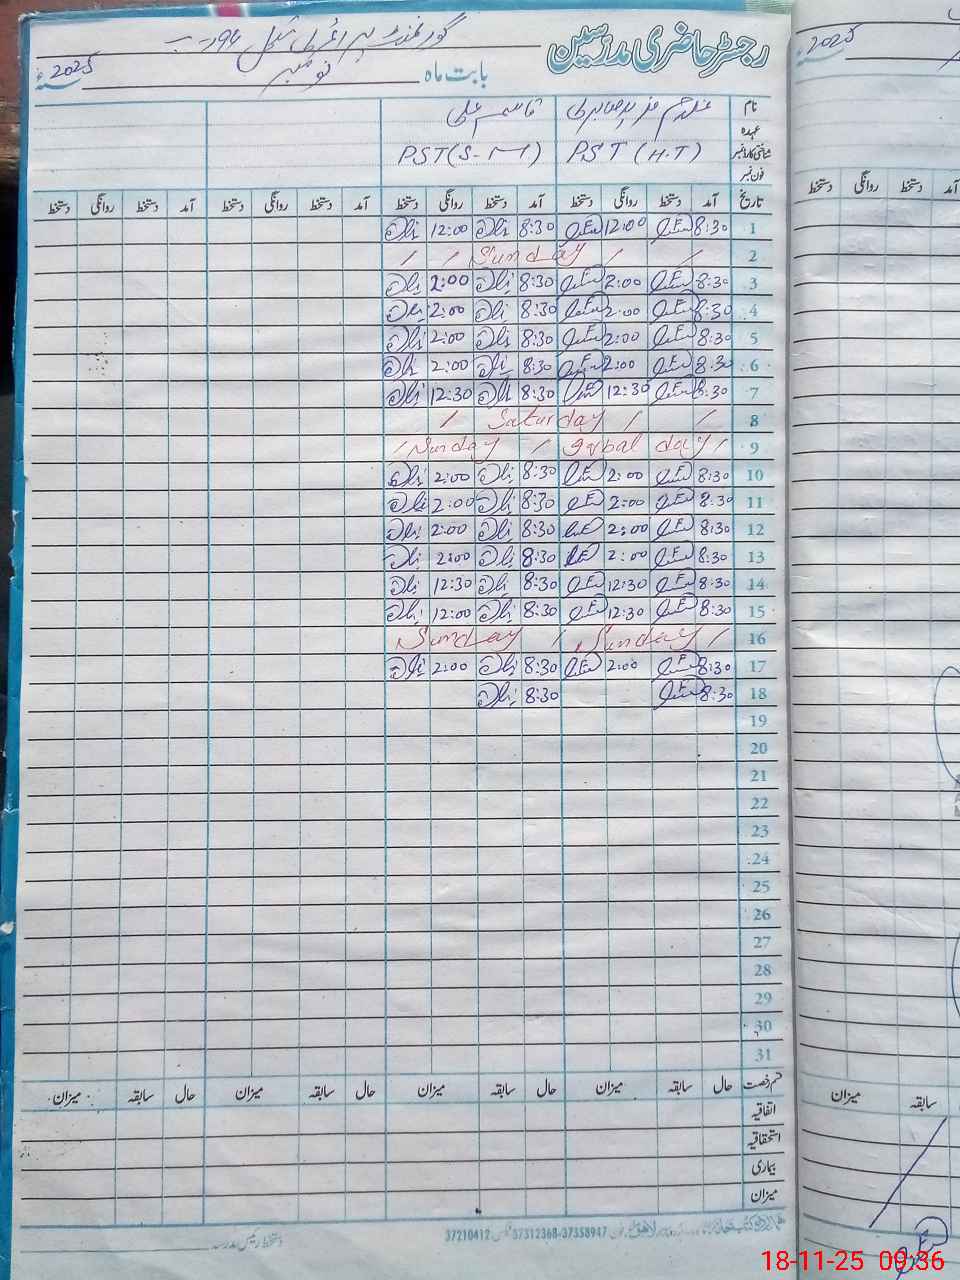 رجسٹر حاضری مدرسین
گورنمنٹ پرائمری سکول
بابت ماہ نومبر سنہ 2025ء
نام غلام فرید قاسم علی
عہدہ
شناختی کارڈ نمبر PST (H.T) PST (S-M)
فون نمبر
تاریخ آمد دستخط روانگی دستخط آمد دستخط روانگی دستخط آمد دستخط روانگی دستخط آمد دستخط روانگی دستخط
1 8:30 12:00 8:30 12:00
2 Sunday
3 8:30 2:00 8:30 2:00
4 8:30 2:00 8:30 2:00
5 8:30 2:00 8:30 2:00
6 8:30 2:00 8:30 2:00
7 8:30 12:30 8:30 12:30
8 Saturday
9 Sunday iqbal day
10 8:30 2:00 8:30 2:00
11 8:30 2:00 8:30 2:00
12 8:30 2:00 8:30 2:00
13 8:30 2:00 8:30 2:00
14 8:30 12:30 8:30 12:30
15 8:30 12:30 8:30 12:00
16 Sunday Sunday
17 8:30 2:00 8:30 2:00
18 8:30 8:30
19
20
21
22
23
24
25
26
27
28
29
30
31
قسم رخصت حال سابقہ میزان حال سابقہ میزان حال سابقہ میزان حال سابقہ میزان
اتفاقیہ
استحقاقیہ
بیماری
میزان
37210412 37312368-37358947
دستخط رئیس مدرسہ
2025
آمد دستخط روانگی دستخط
سابقہ میزان
18-11-25 09:36